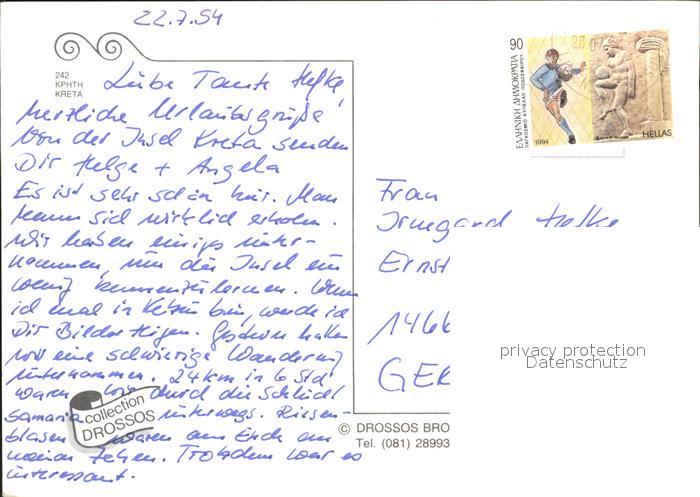 22.7.94
242
ΚΡΗΤΗ
KRETA
Liebe Tante Helke,
herzliche Urlaubsgrüße
von der Insel Kreta senden
Dir Helge + Angela
Es ist sehr schön hier. Man
kann sich wirklich erholen.
Wir haben einiges unter-
nommen, um die Insel ein
wenig kennenzulernen. Wenn
ich mal in Ketzin bin, werde ich
Dir Bilder zeigen. Gestern hatten
wir eine schwierige Wanderung
unternommen. 24 km in 6 Std
waren wir durch die Schlucht
Samaria unterwegs. Riesen-
blasen waren am Ende an
meinen Zehen. Trotzdem war es
interessant.
collection
DROSSOS
90
ΕΛΛΗΝΙΚΗ ΔΗΜΟΚΡΑΤΙΑ
ΠΑΓΚΟΣΜΙΟ ΚΥΠΕΛΛΟ ΠΟΔΟΣΦΑΙΡΟΥ
1994
HELLAS
Frau
Irmgard Helke
Ernst
1466
GER
privacy protection
Datenschutz
© DROSSOS BRO
Tel. (081) 28993